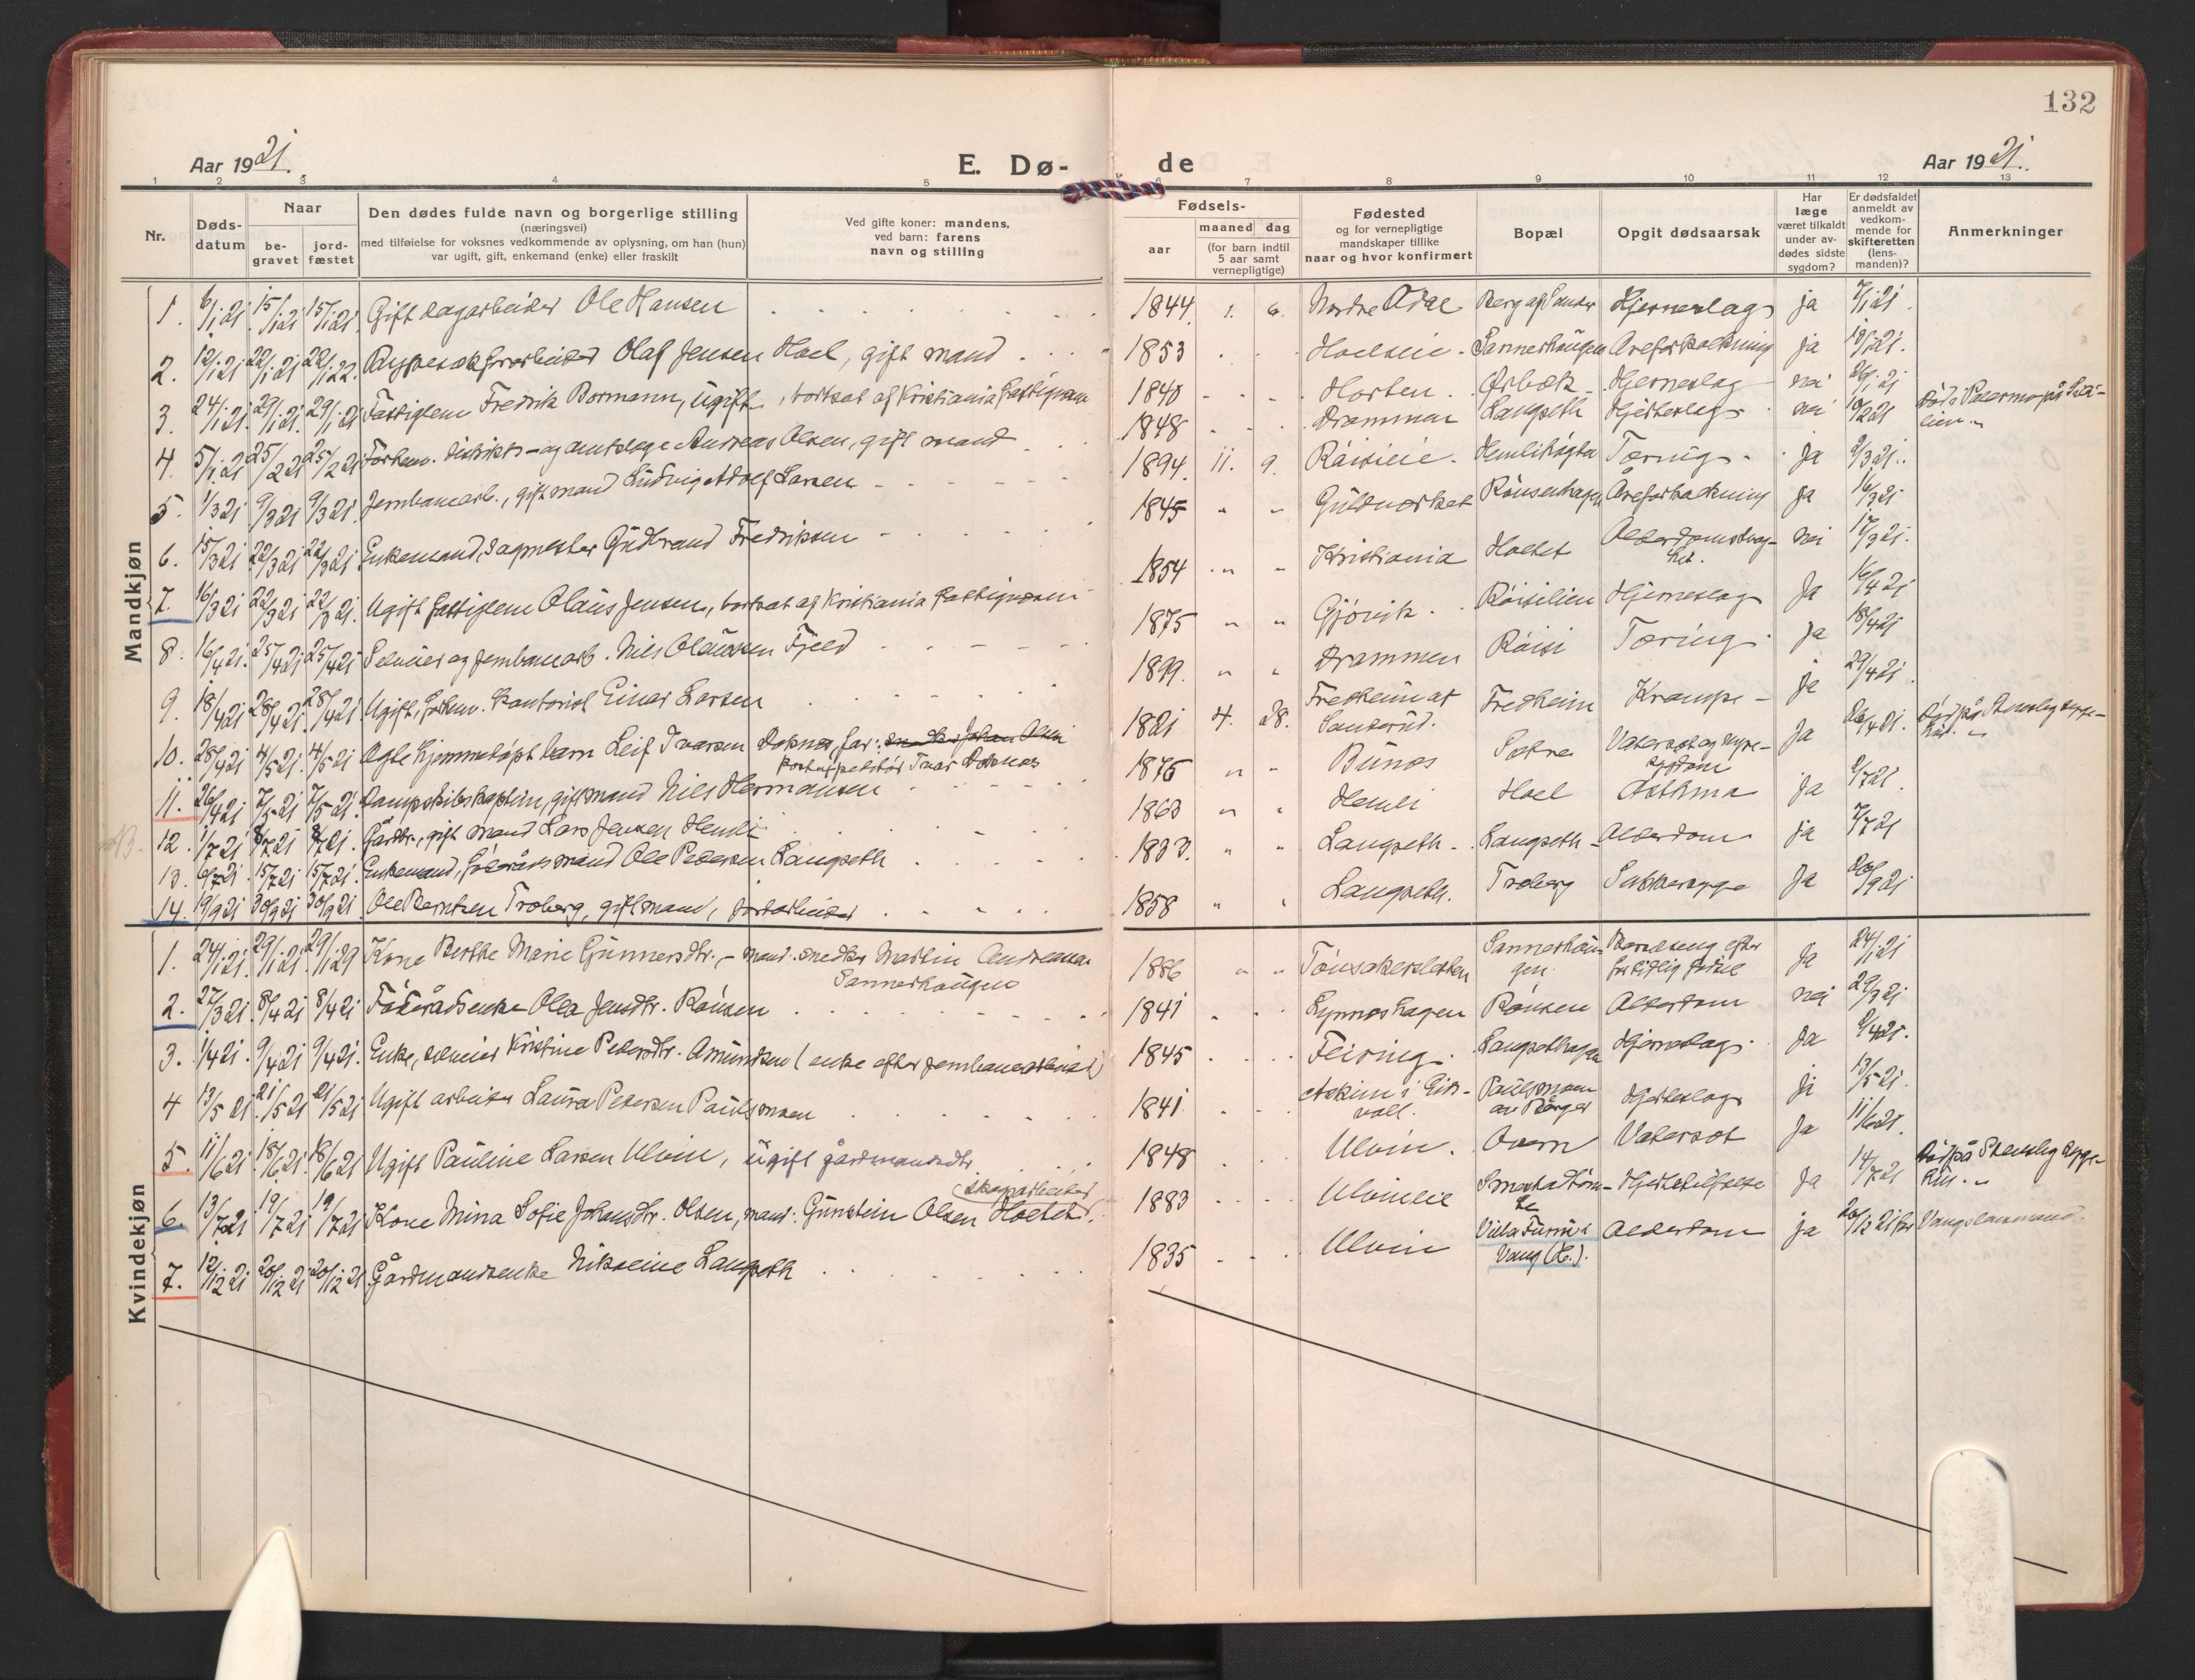 132
Aar 1921. E. Dø- de Aar 1921.
1 2 3 4 5 6 7 8 9 10 11 12 13
Nr. Døds-datum Naar begravet jordfæstet Den dødes fulde navn og borgerlige stilling (næringsvei) med tilføielse for voksnes vedkommende av oplysning, om han (hun) var ugift, gift, enkemand (enke) eller fraskilt Ved gifte koner: mandens, ved barn: farens navn og stilling Fødsels- aar maaned dag (for barn indtil 5 aar samt vernepligtige) Fødested og for vernepligtige mandskaper tillike naar og hvor konfirmert Bopæl Opgit dødsaarsak Har læge været tilkaldt under avdødes sidste sygdom? Er dødsfaldet anmeldt av vedkommende for skifteretten (lensmanden)? Anmerkninger
Mandkjøn
1. 6/1 21 15/1 21 15/1 21 Gift dagarbeider Ole Hansen 1844 1. 6. Nordre Odal Hjerneslag ja 7/1 21.
2. 12/1 21 22/1 21 22/1 22. Olaf Jensen Hoel, gift mand 1853 Hoelseie Sannerhaugen Areforkalkning ja 13/1 21.
3. 24/1 21 29/1 21. 29/1 21 Fattiglem Fredrik Bormann, ugift, bortsat af Kristiania fattigvæsen 1840 Horten Ørbæk Hjerneslag nei 26/1 21
4. 5/1 21 25/2 21 25/2 21 Forhenv. distrikts- og amtslæge Andreas Olsen, gift mand 1848 Drammen Langseth Hjerteslag nei 10/2 21 Død i Palermo på Sicilien
5. 1/3 21 9/3 21 9/3 21. Jernbanearb., gift mand Ludvig Adolf Larsen 1894. 11. 9. Råisieie Tæring Ja 2/3 21.
6. 15/3 21 22/3 21 22/3 21. Enkemand, sagmester Gudbrand Fredriksen 1845 " " Guldverket Rønsenhagen Åreforkalkning Ja 16/3 21
7. 16/3 21 22/3 21 22/3 21. Ugift fattiglem Olaus Jensen, bortsat af Kristiania fattigvæsen 1854 " " Kristiania Holtet Alderdomssvaghet. nei 17/3 21.
8. 16/4 21. 25/4 21 25/4 21 Selveier og jernbanearb. Nils Olaussen Fjeld 1875 " " Gjøvik Råisilien Hjerneslag Ja 16/4 21
9. 18/4 21 28/4 21 28/4 21 Ugift, forhenv. kontorist Einar Larsen 1899. " " Drammen Råisi Tæring Ja 18/4 21
10. 28/4 21 4/5 21 4/5 21 Ægte hjemmedøpt barn Leif Ivarsen Doknes, far: Ivar Doknes 1921 4. 28. Fredheim at Sanderud. Fredheim Krampe ja 29/4 21
11. 26/4 21 7/5 21 7/5 21 Dampskibskaptein, gift mand Nils Hermansen 1876 " " Bunes Sætre Vatersot og nyresygdom Ja 26/4 21. Død på Stensby sygehus.
12. 1/7 21 8/7 21 8/7 21. Gårdbr., gift mand Lars Jensen Hemli 1863 " " Hemli Hoel Asthma Ja 2/7 21.
13. 6/7 21 15/7 21 15/7 21. Enkemand, føderådsmand Ole Pedersen Langseth 1833. " " Langseth Langseth Alderdom ja 7/7 21
14. 19/9 21 30/9 21 30/9 21 Ole Berntsen Troberg, gift mand, jordarbeider 1858 " " Langseth. Troberg Sukkersyge Ja 20/9 21
Kvindekjøn
1. 24/1 21. 29/1 21 29/1 29 Kone Berthe Marie Gunnersdtr. – mand: snedker Martin Andreassen Sannerhaugen 1886 " " Tønsakersletten Sannerhaugen Barselseng efter for tidlig fødsel Ja 24/1 21
2. 27/3 21. 8/4 21 8/4 21 Føderådsenke Olea Jensdtr. Rønsen 1841 Lynneshagen Rønsen Alderdom nei 29/3 21
3. 1/4 21. 9/4 21 9/4 21. Enke, selveier Kristine Pedersdtr. Amundsen (enke efter jernbanearbeider) 1845 Feiring Langsethhagen Hjerneslag Ja 2/4 21.
4 13/5 21 21/5 21 21/5 21 Ugift arbeider Laura Petersen Paulsmoen 1841 Askim i Eidsvoll. Paulsmoen Hjerteslag ja 13/5 21.
5. 11/6 21. 18/6 21 18/6 21 Ugift Pauline Larsen Ulvin, ugift gårdmandsdtr. 1848 Ulvin. Vatersot Ja 11/6 21.
6. 13/7 21 19/7 21 19/7 21 Kone Mina Sofie Johansdtr. Olsen, mand: skogarbeider Gunstein Olsen Holtet. 1883 Ulvineie Ja 14/7 21 Død på Stensby sygehus.
7. 12/12 21 20/12 21 20/12 21 Gårdmandsenke Nikoline Langseth 1835 Ulvin Villa Furu i Vang (H.). Alderdom ja 20/12 21 for Vangs lensmand.